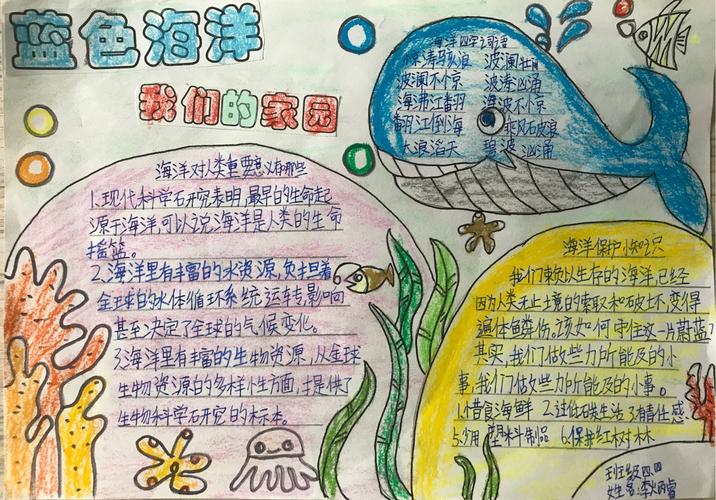 蓝色海洋
我们的家园
海洋四字词语
惊涛骇浪 波澜壮阔
波澜不惊 波涛汹涌
海沸江翻 海波不惊
翻江倒海 乘风破浪
大浪滔天 碧波汹涌
海洋对人类重要意义有哪些
1.现代科学研究表明,最早的生命起
源于海洋,可以说海洋是人类的生命
摇篮。
2.海洋里有丰富的水资源,负担着
全球的水体循环系统运转,影响
甚至决定了全球的气候变化。
3.海洋里有丰富的生物资源,从全球
生物资源的多样性方面,提供了
生物科学研究的标本。
海洋保护小知识
我们赖以生存的海洋,已经
因为人类无止境的索取和破坏,变得
遍体鳞伤。该如何守住这一片蔚蓝?
其实,我们做些力所能及的小
事,我们做些力所能及的小事。
1.惜食海鲜 2.过低碳生活 3.有责任感
5.少用 塑料制品 6.保护红树林
班级:四.四
姓名:李炳睿